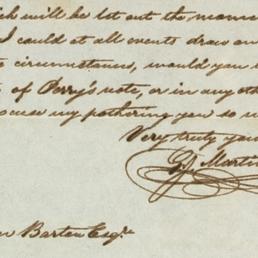 ich will be let out the manne
I could at all events draw on
e circumstance, would you
t of Perry's note, or in any oth
xcuse my pothering you so m
Very truly you
G J Martin
en Barten Esqr